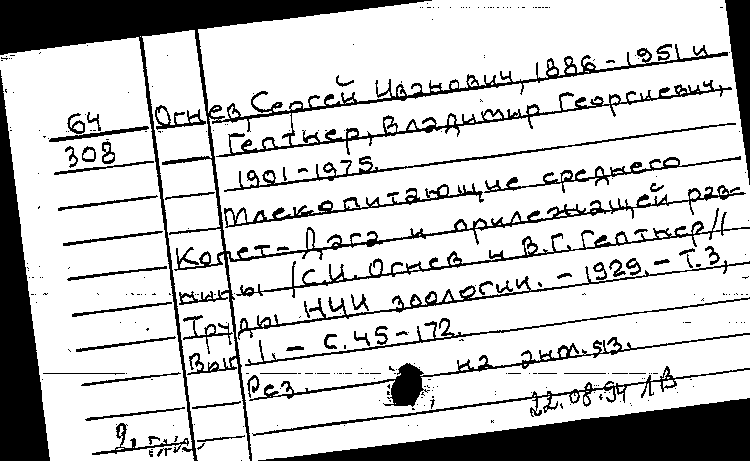 64 Огнев, Сергей Иванович, 1886-1951 и
308 Гептнер, Владимир Георгиевич,
1901-1975.
Млекопитающие среднего
Копет-Дага и прилежащей рав-
нины / С.И. Огнев и В.Г. Гептнер //
Труды НИИ зоологии. - 1929. - Т.3,
Вып.1. - С.45-172.
Рез. на англ.яз.
22.08.94 ЛВ